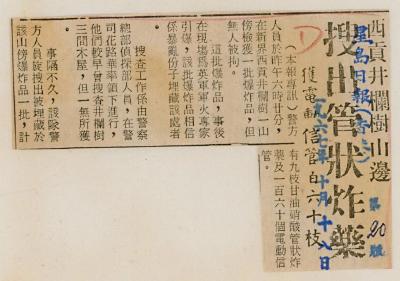 西貢井欄樹山邊
搜出管狀炸藥
獲電動信管百六十枝
星島日報
一九六七年十月十八日
第20版
D
（本報專訊）警方
人員於昨午六時半分，
在新界西貢井欄樹一山
傍檢獲一批爆炸品，但
無人被拘。
這批爆炸品，事後
在現塲爲英軍軍火專家
引爆，該批爆炸品相信
係暴亂份子埋藏該處者
。
搜查工作係由警察
總部偵探部人員，在警
司花路華率領下進行，
他們較早曾搜查井欄樹
三間木屋，但一無所獲
。
事隔不久，該隊警
方人員旋搜出被埋藏於
該山傍爆炸品一批，計
有九枝甘油硝酸管狀炸
藥及一百六十個電動信
管。